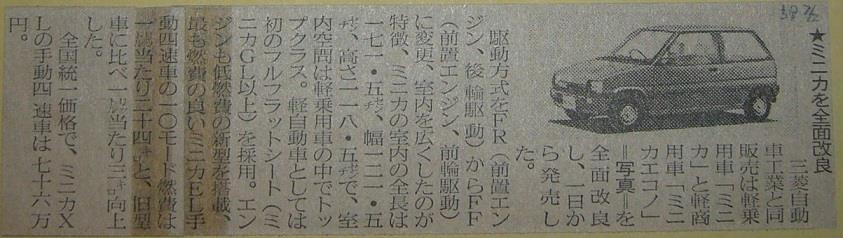 ★ミニカを全面改良
三菱自動
車工業と同
販売は軽乗
用車「ミニ
カ」と軽商
用車「ミニ
カエコノ」
＝写真＝を
全面改良
し、一日か
ら発売し
た。
駆動方式をFR（前置エン
ジン、後輪駆動）からFF
（前置エンジン、前輪駆動）
に変更、室内を広くしたのが
特徴、ミニカの室内の全長は
一七一・五㌢、幅一二一・五
㌢、高さ一一八・五㌢で、室
内空間は軽乗用車の中でトッ
プクラス。軽自動車としては
初のフルフラットシート（ミ
ニカGL以上）を採用。エン
ジンも低燃費の新型を搭載、
最も燃費の良いミニカEL手
動四速車の一〇モード燃費は
一㍑当たり二十四㌔と、旧型
車に比べ一㍑当たり三㌔向上
した。
全国統一価格で、ミニカX
Lの手動四速車は七十六万
円。